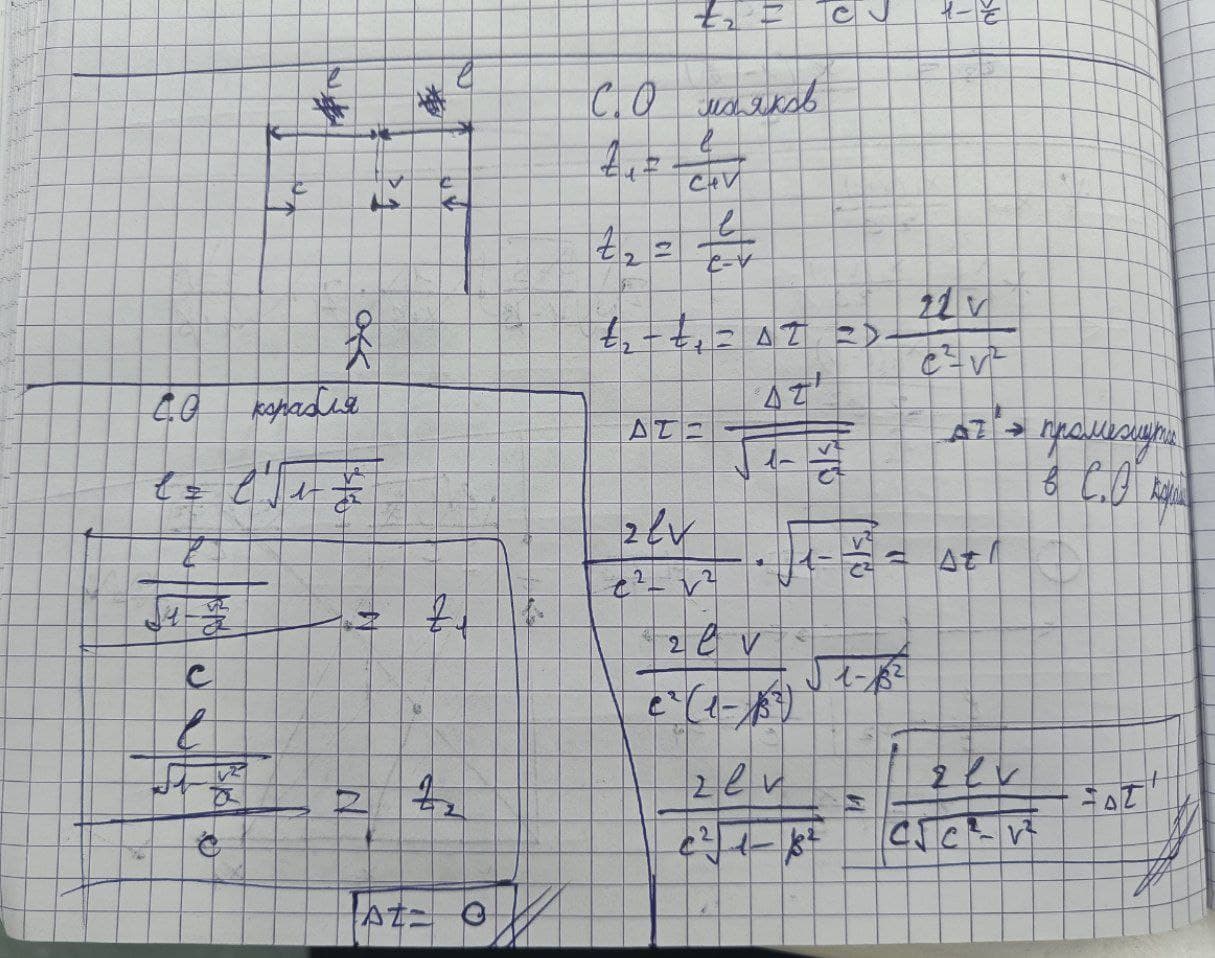 t₂ = c√ 1-v/c
l l
c v c
С.О маяков
t₁ = l/(c+v)
t₂ = l/(c-v)
t₂ - t₁ = Δτ => 2lv/(c²-v²)
Δτ = Δτ'/√(1-v²/c²) Δτ' → промежуток
в С.О
2lv/(c²-v²) · √(1-v²/c²) = Δτ'
2lv/(c²(1-β²)) √(1-β²)
2lv/(c²√(1-β²)) = 2lv/(c√(c²-v²)) = Δτ'
С.О корабля
l = l'√(1-v²/c²)
(l/√(1-v²/c²))/c = t₁
(l/√(1-v²/c²))/c = t₂
Δτ = 0